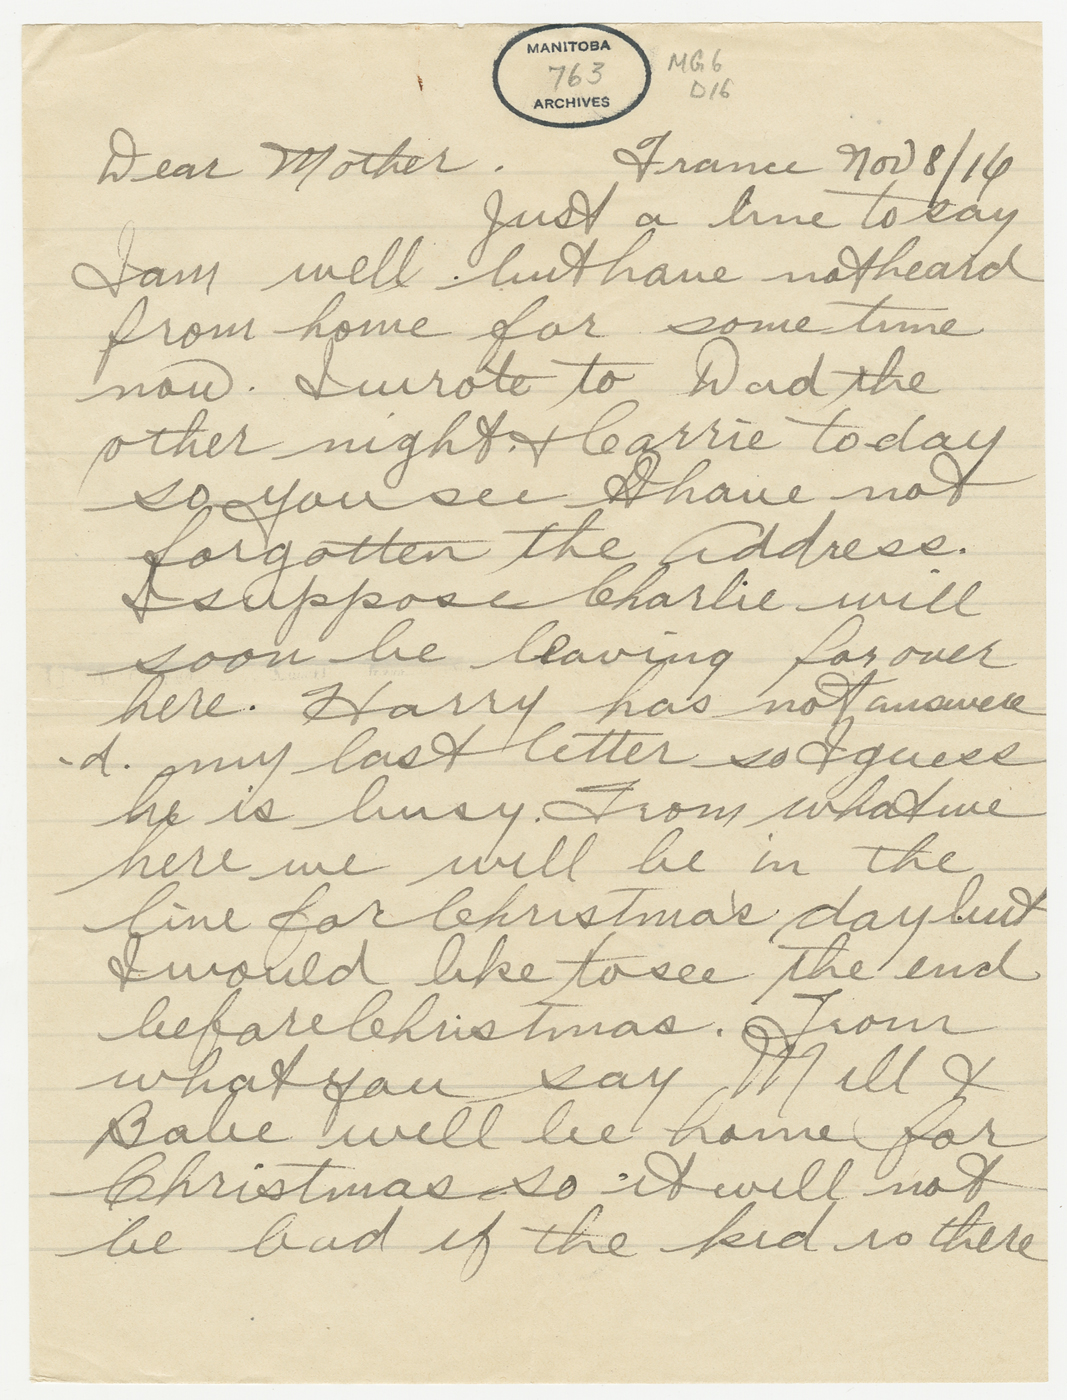 MANITOBA
763
ARCHIVES
MG6
D16
Dear Mother. France Nov 8/16
Just a line to say
I am well. but have not heard
from home for some time
now. I wrote to Dad the
other night. & Carrie today
so you see I have not
forgotten the address.
I suppose Charlie will
soon be leaving for over
here. Harry has not answere
-d. my last letter so I guess
he is busy. From what we
here we will be in the
line for Christma's day but
I would like to see the end
before Christmas. From
what you say Mill &
Babe will be home for
Christmas so it will not
be bad if the kid is there